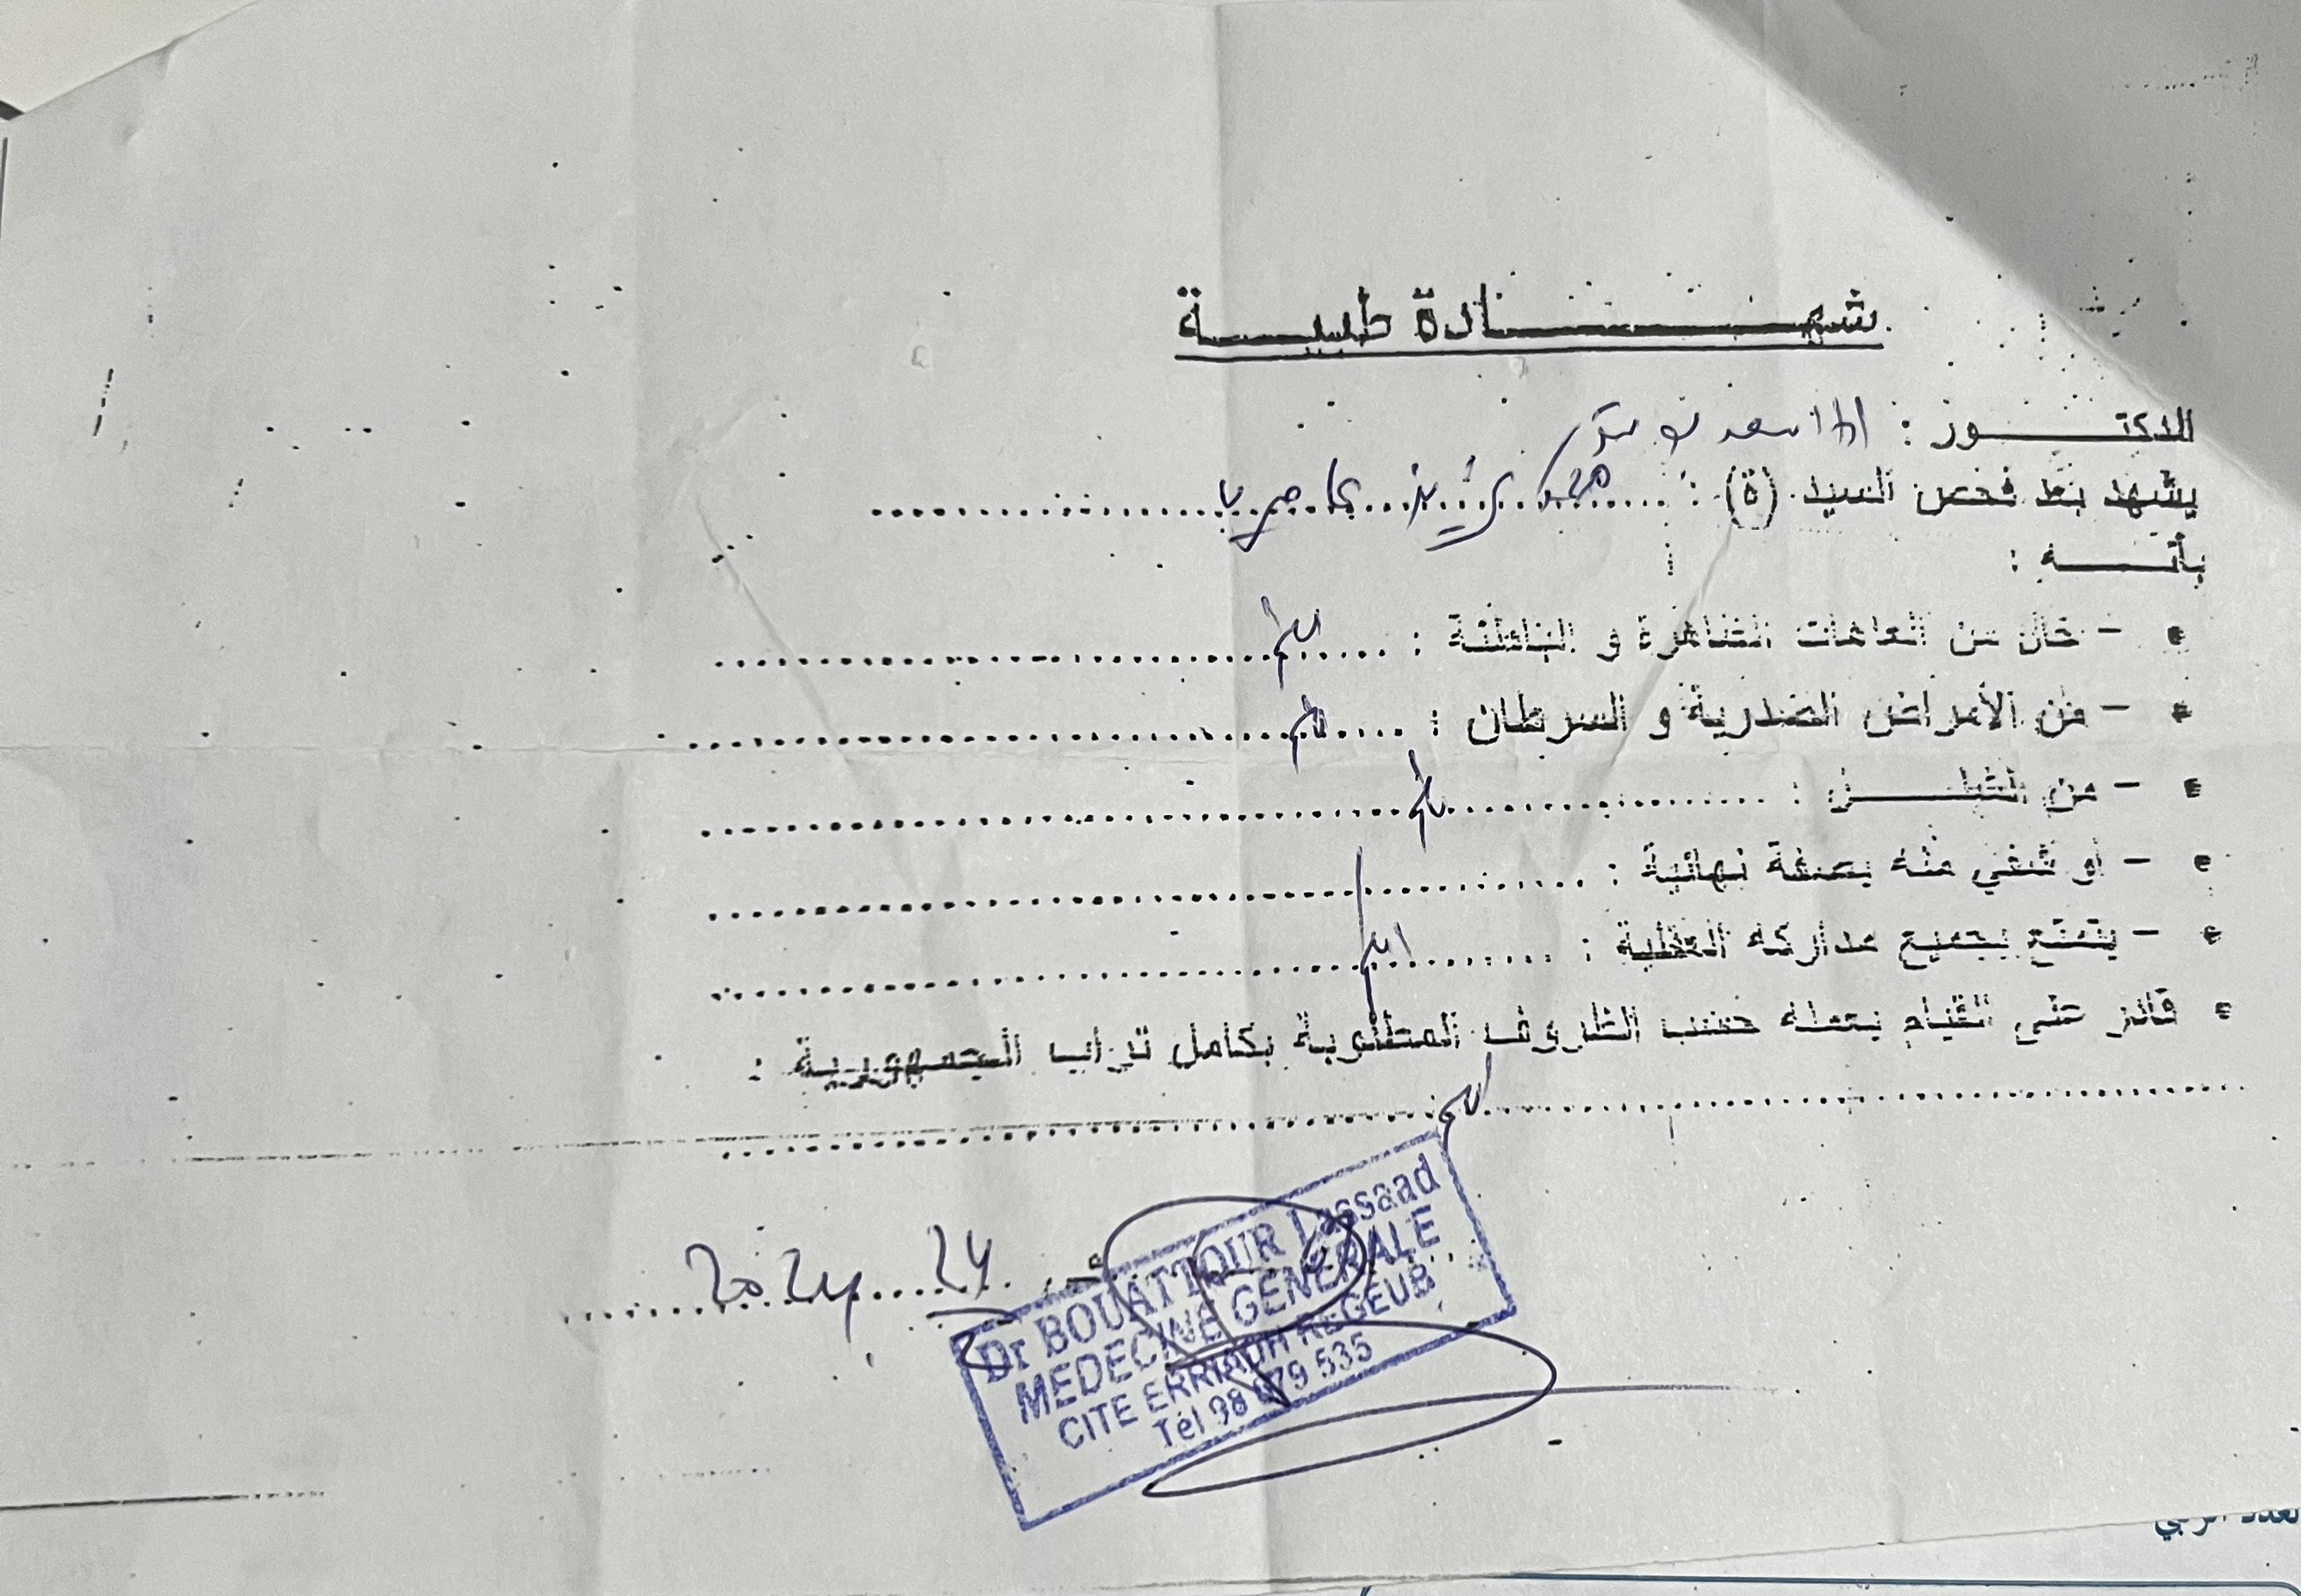 شهـــــــــادة طبيـــــة
الدكتـــــور : الأسعد بوعتور
يشهد بعد فحص السيد (ة) : محمد
بأنـــــه :
- خال من العاهات الظاهرة و الباطنة : نعم
- من الأمراض الصدرية و السرطان : نعم
- من الشلـــــل : نعم
- أو شفي منه بصفة نهائية :
- يتمتع بجميع مداركه العقلية : نعم
قادر على القيام بعمله حسب الظروف المطلوبة بكامل تراب الجمهورية :
نعم
2024
Dr BOUATTOUR Lassaad
MEDECINE GENERALE
CITE ERRIADH REGEUB
Tél 98 679 535